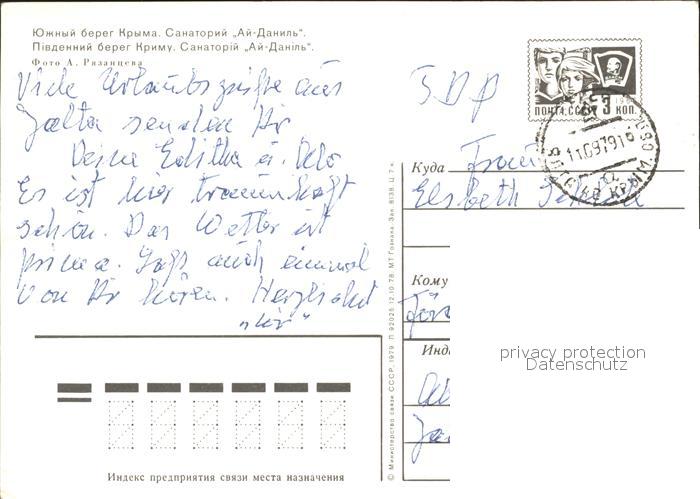 Южный берег Крыма. Санаторий „Ай-Даниль“.
Південний берег Криму. Санаторій „Ай-Даніль“.
Фото А. Рязанцева
Viele Urlaubsgrüße aus
Jalta senden Dir
Deine Editha u. Udo
Es ist hier traumhaft
schön. Das Wetter ist
prima. Laß auch einmal
von Dir hören. Herzlichst
„Wir“
ПОЧТА СССР 3 КОП.
Куда Frau
Elsbeth
Кому
Инд
privacy protection
Datenschutz
Индекс предприятия связи места назначения
© Министерство связи СССР, 1979. Л 92025 12.10.78. МТ Гознака. Зак. 8138. Ц. 7 к.